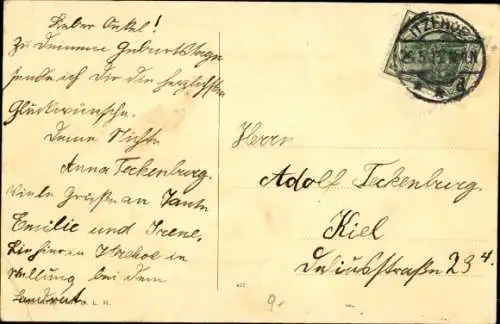 Lieber Onkel!
Zu Deinem Geburtstage
sende ich Dir die herzlichsten
Glückwünsche.
Deine Nichte
Anna Teckenburg.
Viele Grüße an Tante
Emilie und Irene.
Bin hier in Itzehoe in
Stellung bei dem
Landrat
ITZEHOE
Herrn
Adolf Teckenburg.
Kiel
Deliusstraße 23 4.
9.-